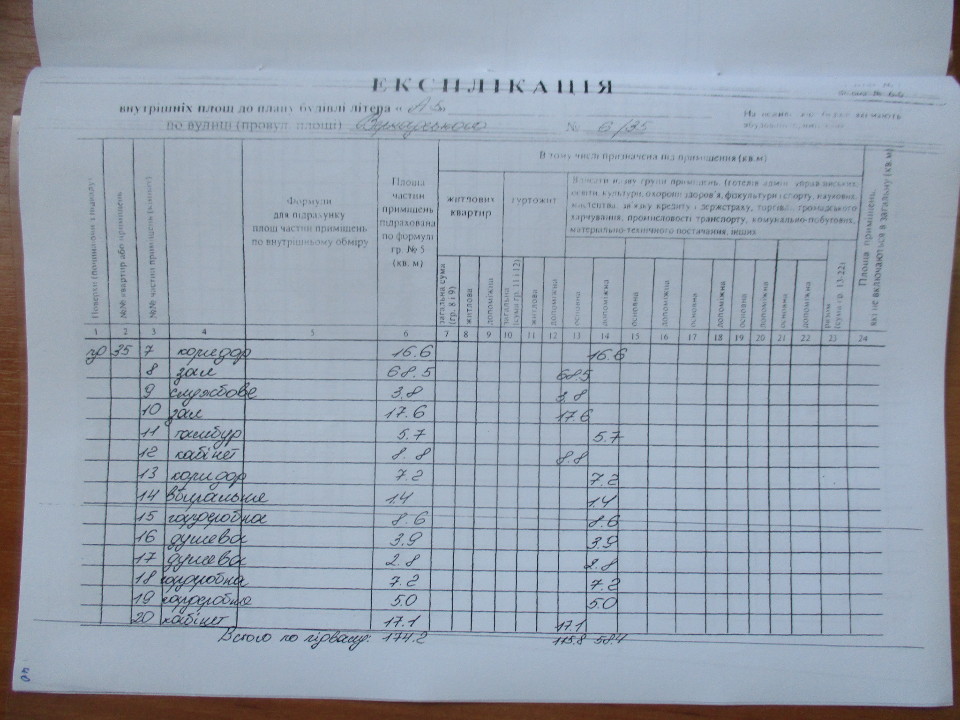 ЕКСПЛІКАЦІЯ
внутрішніх площ до плану будівлі літера « А-5
по вулиці (провул площі) № 6/35
В тому числі призначена під приміщення (кв.м)
Поверхи (починаючи з підвалу)
№№ квартир або приміщень
№№ частин приміщень (кімнат)
Формули
для підрахунку
площ частин приміщень
по внутрішньому обміру
Площа
частин
приміщень
підрахована
по формулі
гр. № 5
(кв. м)
житлових
квартир
гуртожит
освіти, культури, охорони здоров'я, фізкультури і спорту, наукових,
мистецтва, зв'язку кредиту і держстраху, торгівлі громадського
харчування, промисловості транспорту, комунально-побутових,
матеріально-технічного постачання, інших
загальна сума
(гр. 8 і 9)
житлова
допоміжна
загальна
(сума гр. 11 і 12)
житлова
допоміжна
основна
допоміжна
основна
допоміжна
основна
допоміжна
основна
допоміжна
основна
допоміжна
разом
(сума гр. 13-22)
Площа приміщень,
які не включаються в загальну (кв.м)
1 2 3 4 5 6 7 8 9 10 11 12 13 14 15 16 17 18 19 20 21 22 23 24
35 7 коридор 16.6 16.6
8 зал 68.5 68.5
9 службове 3.8 3.8
10 зал 17.6 17.6
11 тамбур 5.7 5.7
12 кабінет 8.8 8.8
13 коридор 7.2 7.2
14 вбиральня 1.4 1.4
15 гардеробна 8.6 8.6
16 душева 3.9 3.9
17 душева 2.8 2.8
18 гардеробна 7.2 7.2
19 гардеробна 5.0 5.0
20 кабінет 17.1 17.1
Всього по підвалу: 174.2 115.8 58.4
40